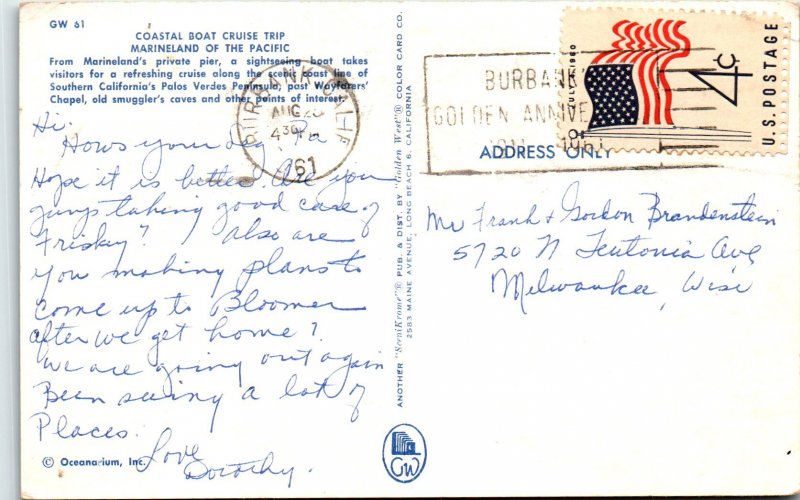 GW 61
COASTAL BOAT CRUISE TRIP
MARINELAND OF THE PACIFIC
From Marineland's private pier, a sightseeing boat takes
visitors for a refreshing cruise along the scenic coast line of
Southern California's Palos Verdes Peninsula, past Wayfarers'
Chapel, old smuggler's caves and other points of interest.
Hi.
Hows your leg Pa
Hope it is better. Are you
guys taking good care of
Frisky? Also are
you making plans to
come up to Bloomer
after we get home?
We are going out again
Been seeing a lot of
Places.
Love
Dorothy.
© Oceanarium, Inc.
BURBANK, CALIF
AUG
430PM
'61
ANOTHER "SceniKrome"® PUB. & DIST. BY "Golden West"® COLOR CARD CO.
2583 MAINE AVENUE, LONG BEACH 6, CALIFORNIA
GW
BURBANK'S
GOLDEN ANNIVE
1911 - 1961
JULY 4, 1960
4¢
U.S. POSTAGE
ADDRESS ONLY
Mr Frank & Gordon Brandenstein
5720 N Teutonia Ave
Milwaukee, Wisc